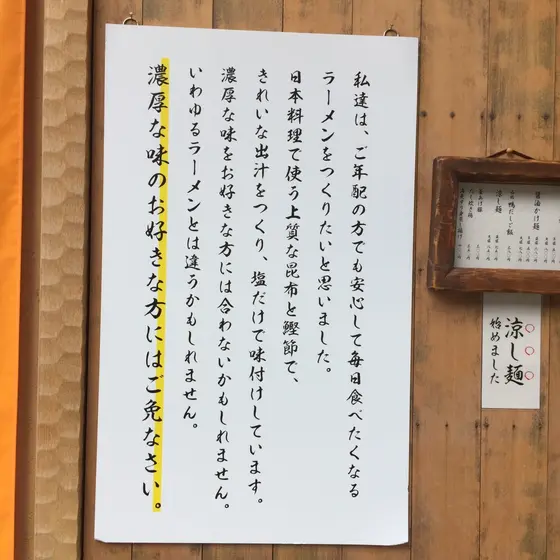 私達は、ご年配の方でも安心して毎日食べたくなる
ラーメンをつくりたいと思いました。
日本料理で使う上質な昆布と鰹節で、
きれいな出汁をつくり、塩だけで味付けしています。
濃厚な味をお好きな方には合わないかもしれません。
いわゆるラーメンとは違うかもしれません。
濃厚な味のお好きな方にはご免なさい。
醤油かけ麺
涼し麺
〇〇〇
涼し麺
始めました